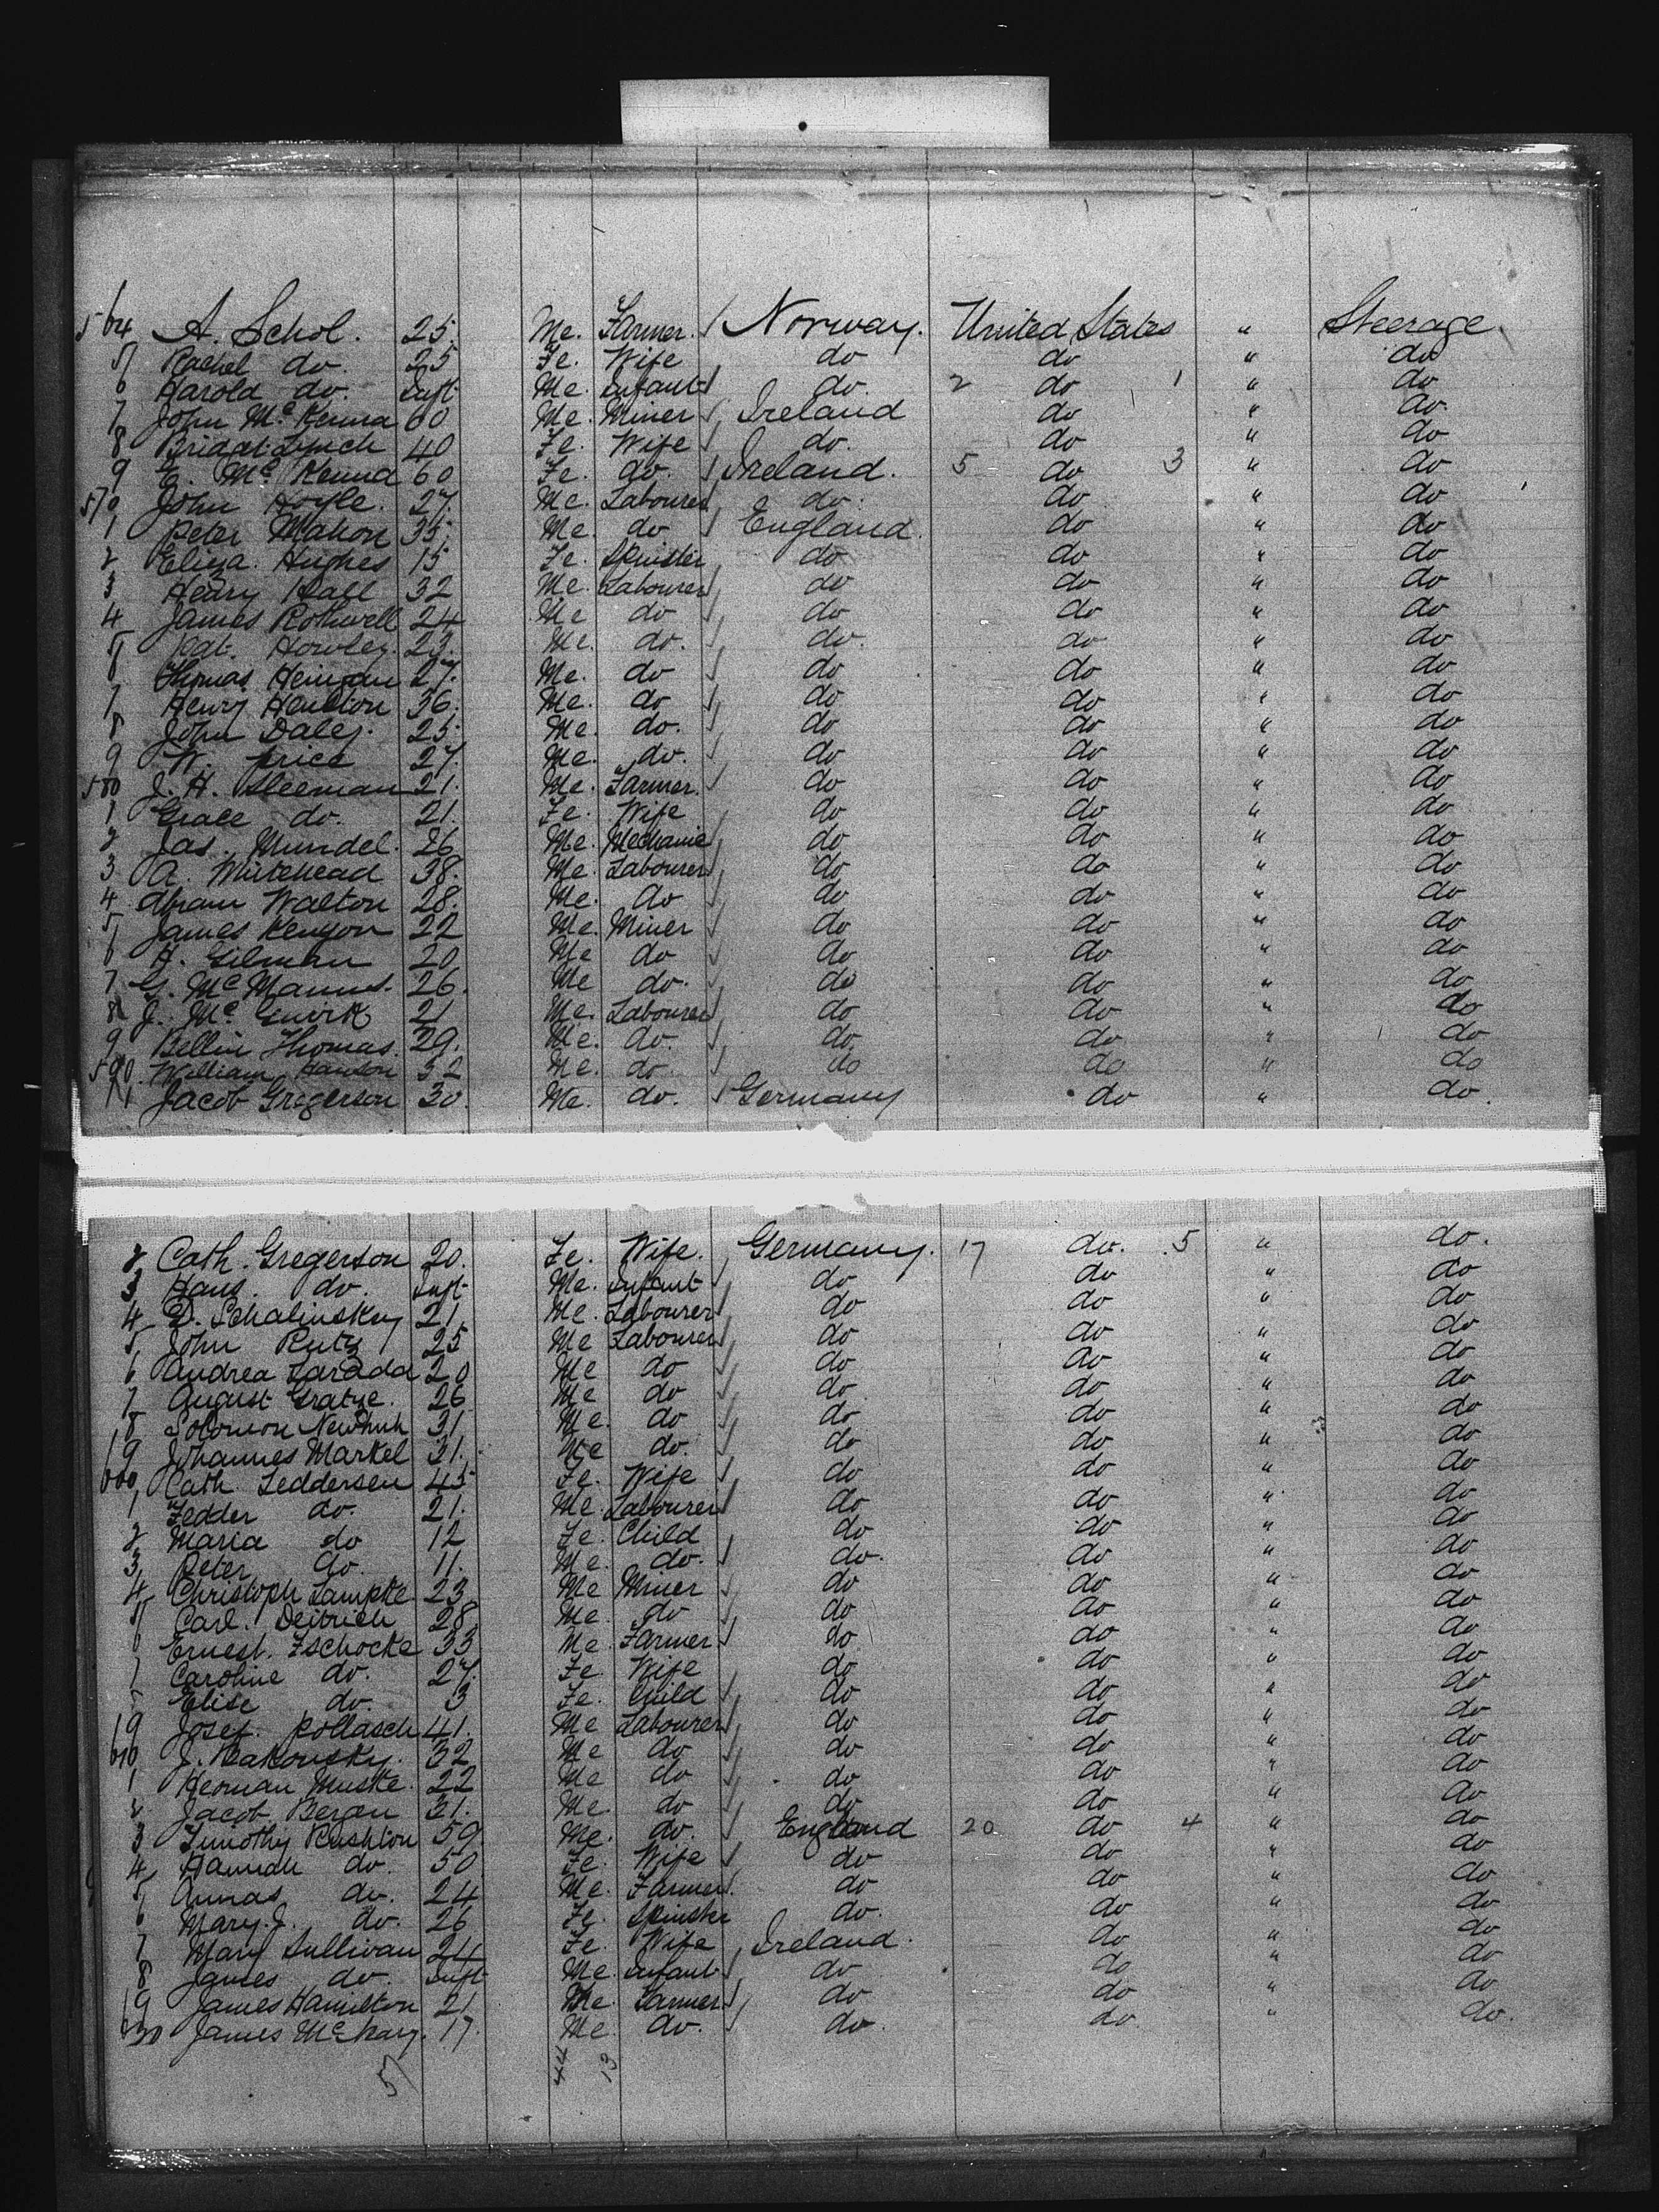 564 A. Schol. 25. Me. Farmer. / Norway. United States " Steerage
5 Rachel do. 25 Fe. Wife do do " do
6 Harold do. Inft Me. Infant do. 2 do 1 " do
7 John McKenna 60 Me. Miner Ireland do " do.
8 Bridgt Lynch 40 Fe. Wife do. do " do
9 E. McKenna 60 Fe. do. Ireland. 5 do 3 " do
570 John Hoyle. 27. Me. Labourer do. do " do
1 Peter Mahon 35. Me. do England. do " do
2 Eliza. Hughes 15 Fe. Spinster do do " do
3 Henry Hall 32 Me. Labourer do do " do
4 James Rothwell 24 Me do do do " do
5 Pat. Howley. 23. Me. do. do. do " do
6 Thomas 27. Me. do do do " do
7 Henry 36. Me. do do do " do
8 John Daley. 25. Me. do. do do " do
9 W. Price 27. Me. do. do do " do
580 J. H. Sleeman 21. Me. Farmer. do do " do
1 Grace do. 21. Fe. Wife do do " do
2 Jas. Mundel. 26 Me. Mechanic do do " do
3 A. Whitehead 38. Me. Labourer do do " do
4 Abram Walton 28. Me. do do do " do
5 James Kenyon 22 Me. Miner do do " do
6 Gilman 20 Me do do do " do
7 G. McManus. 26. Me do. do do " do
8 J. Mc 21 Me. Labourer do do " do
9 Bellin Thomas. 29. Me. do. do do " do
590. William Hanson 32 Me. do. do do " do
1 Jacob Gregerson 30. Me. do. Germany do " do.
2 Cath. Gregerson 20. Fe. Wife. Germany. 17 do. 5 " do.
3 Hans. do. Inft Me. Infant do do " do
4 D. Schalinsky 21 Me. Labourer do do " do
5 John Rutz 25 Me Labourer do do " do
6 Andrea Zarada 20 Me do do do " do
7 August Gratze. 26 Me do do do " do
8 Solomon 31 Me. do do do " do
9 Johannes Markel 31. Me do. do do " do
600 Cath. Feddersen 45 Fe. Wife do do " do
1 Fedder do. 21. Me. Labourer do do " do
2 Maria do 12 Fe. Child do do " do
3 Peter do. 11. Me. do. do. do " do
4 Christoph Lampke 23 Me Miner do do " do
5 Carl. Deitrich 28 Me. do do do " do
6 Ernest. Zschocke 33 Me. Farmer do do " do
7 Caroline do. 27. Fe. Wife do do " do
8 Elise do. 3 Fe. Child do do " do
9 Josef. Pollasch 41. Me Labourer do do " do
610 J. Rakowsky. 32 Me do do do " do
1 Herman Muske. 22 Me do do do " do
2 Jacob Bergen 31. Me. do do do " do
3 Timothy Rushton 59. Me. do. England 20 do 4 " do
4 Hannah do. 50 Fe. Wife do do " do
5 Annas do. 24 Me. Farmer. do do " do
6 Mary. J. do. 26 Fe. Spinster do. do " do
7 Mary Sullivan 24 Fe. Wife Ireland. do " do
8 James do. Inft Me. Infant do do " do
9 James Hamilton 21 Me. Farmer do do " do
James 17. Me. do. do. do. " do.
57 44 13